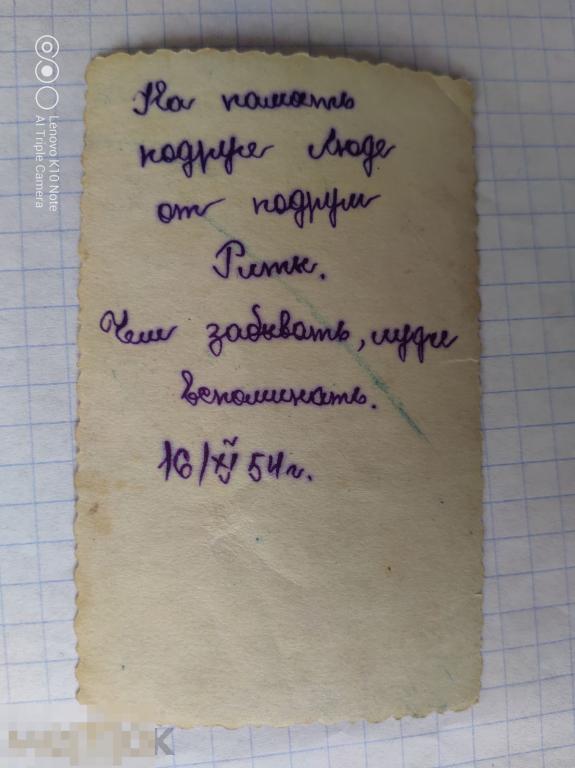 На память
подруге Люде
от подруги
Риты.
Чем забывать, лучше
вспоминать.
16/XI 54 г.
Lenovo K10 Note
AI Triple Camera